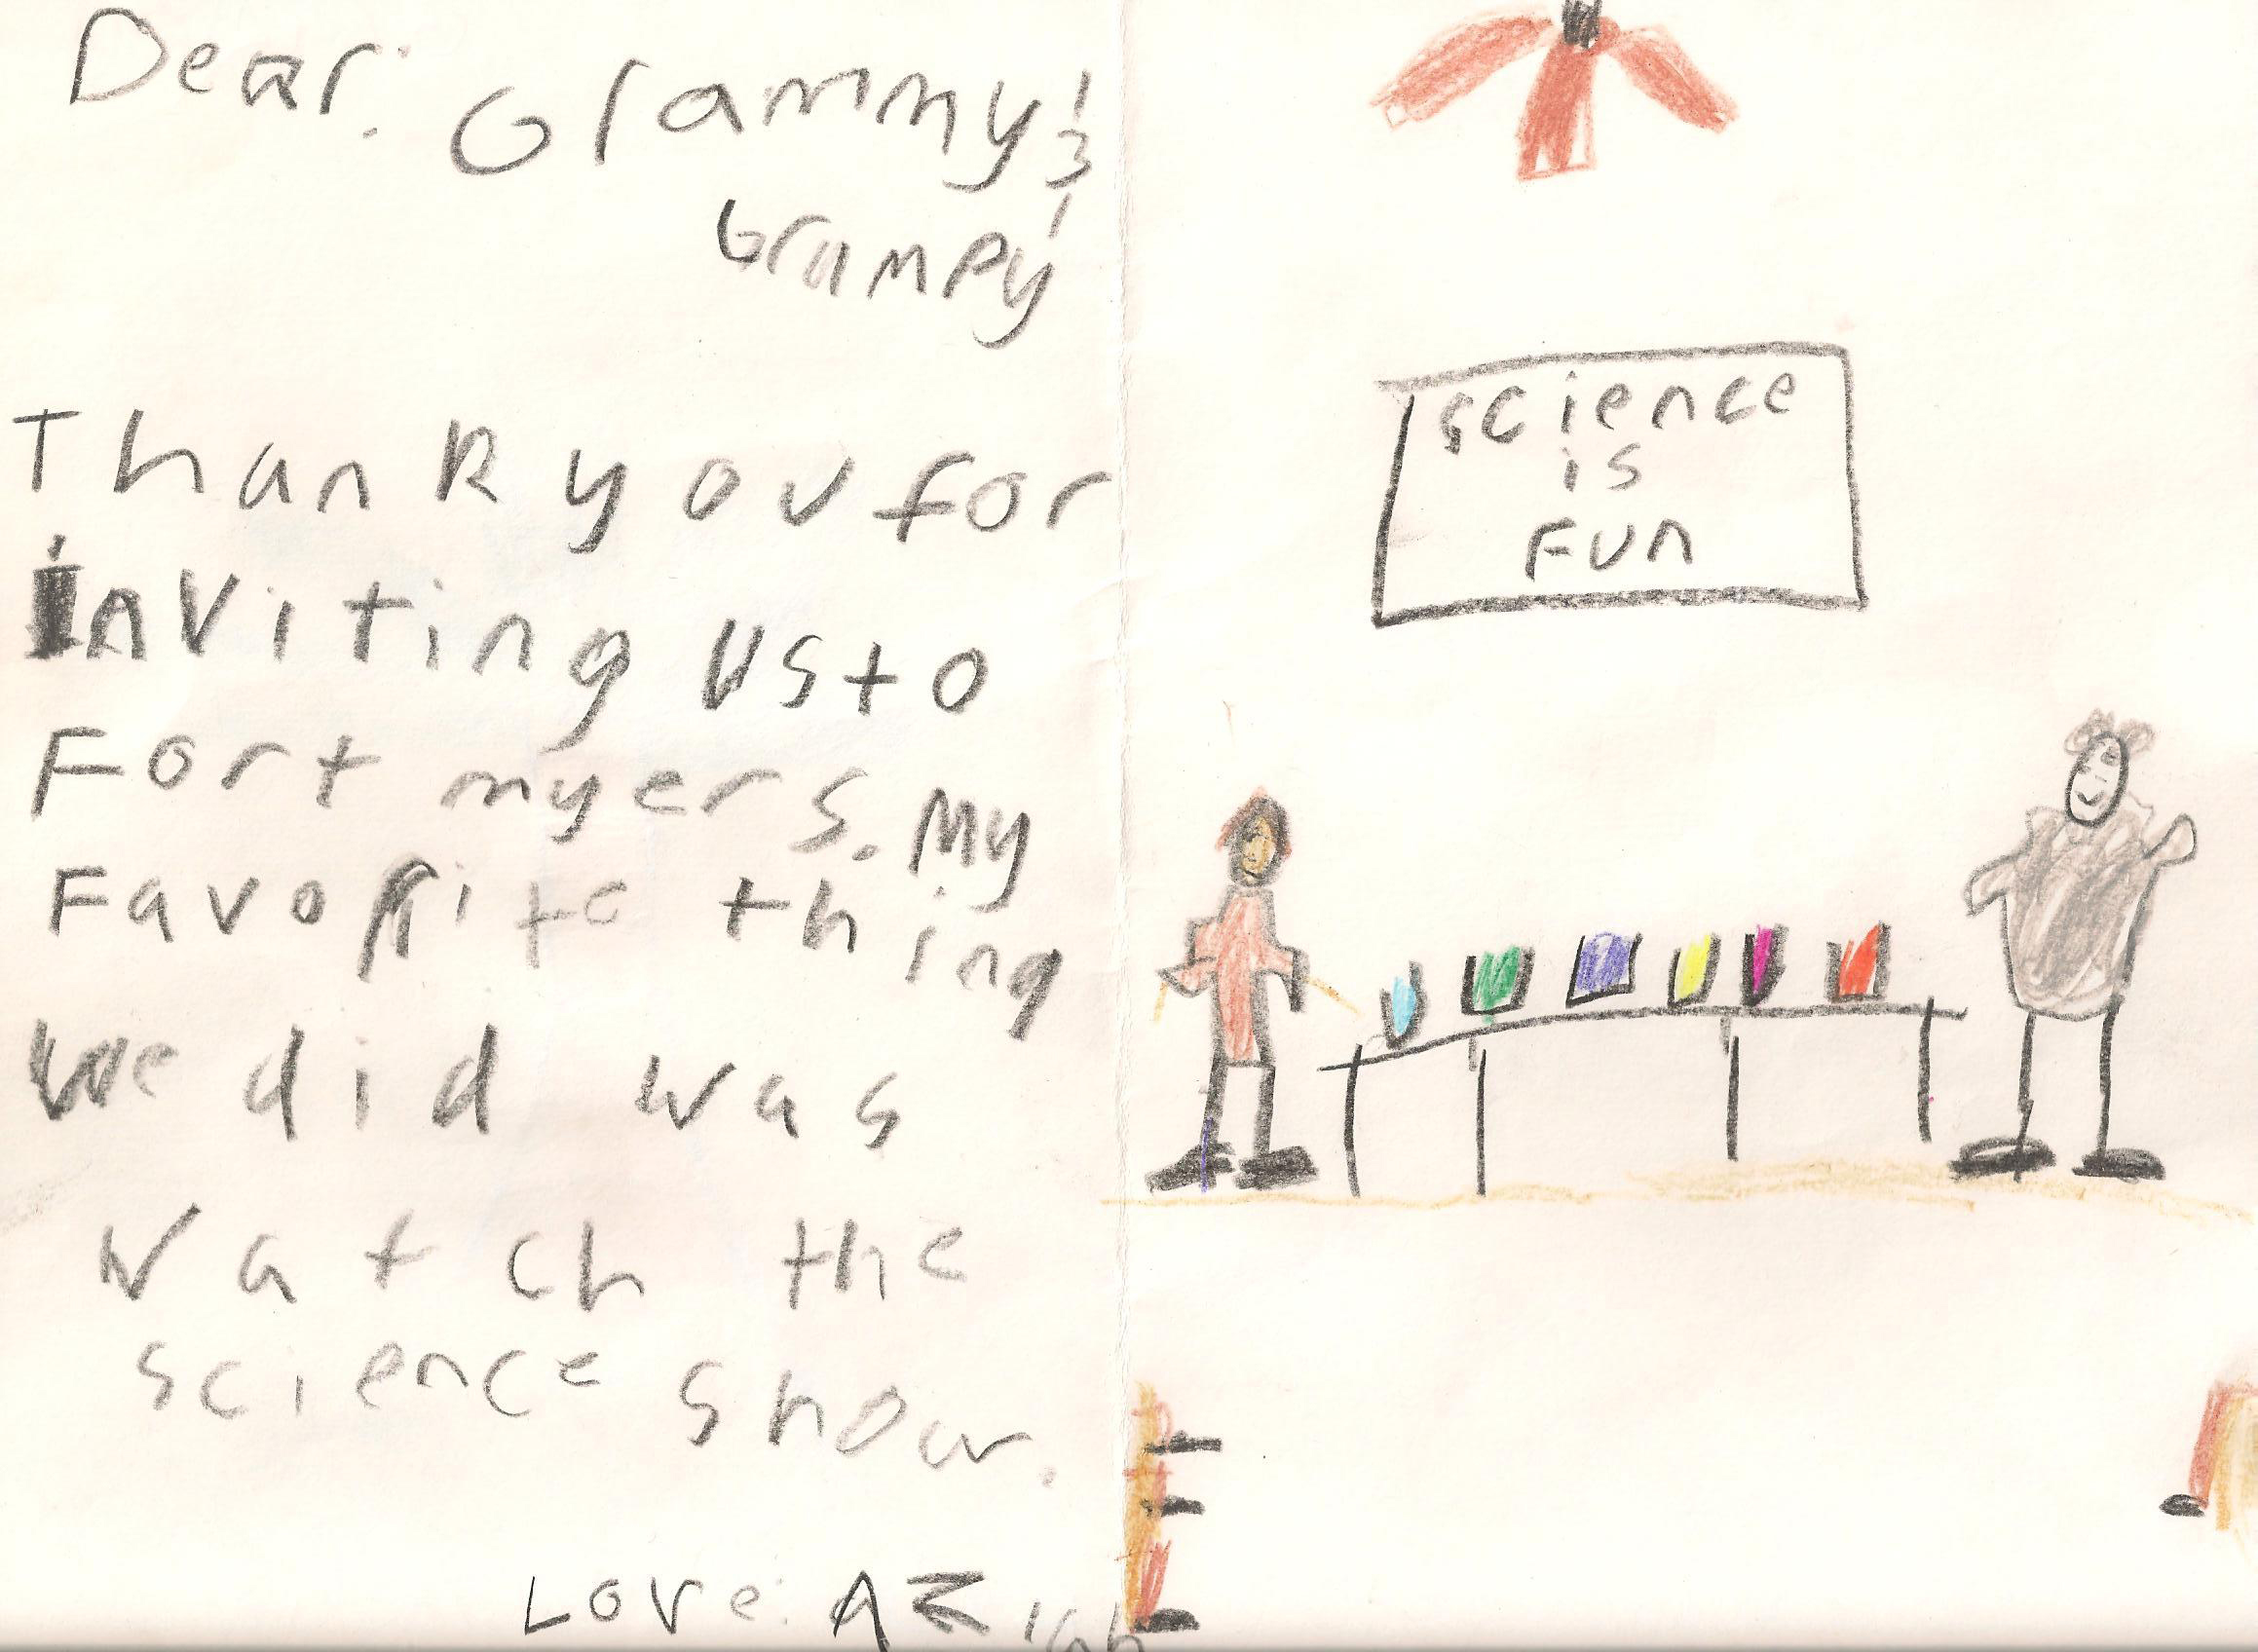 Dear: Grammy &
Grampy
Thank you for
inviting us to
Fort myers. My
Favorite thing
we did was
watch the
science show.
Love:
science
is
Fun